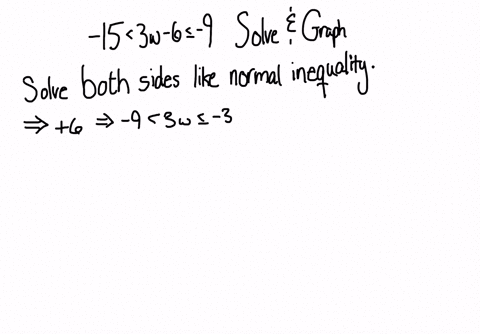 -15 < 3w - 6 ≤ -9 Solve & Graph
Solve both sides like normal inequality.
⇒ +6 ⇒ -9 < 3w ≤ -3